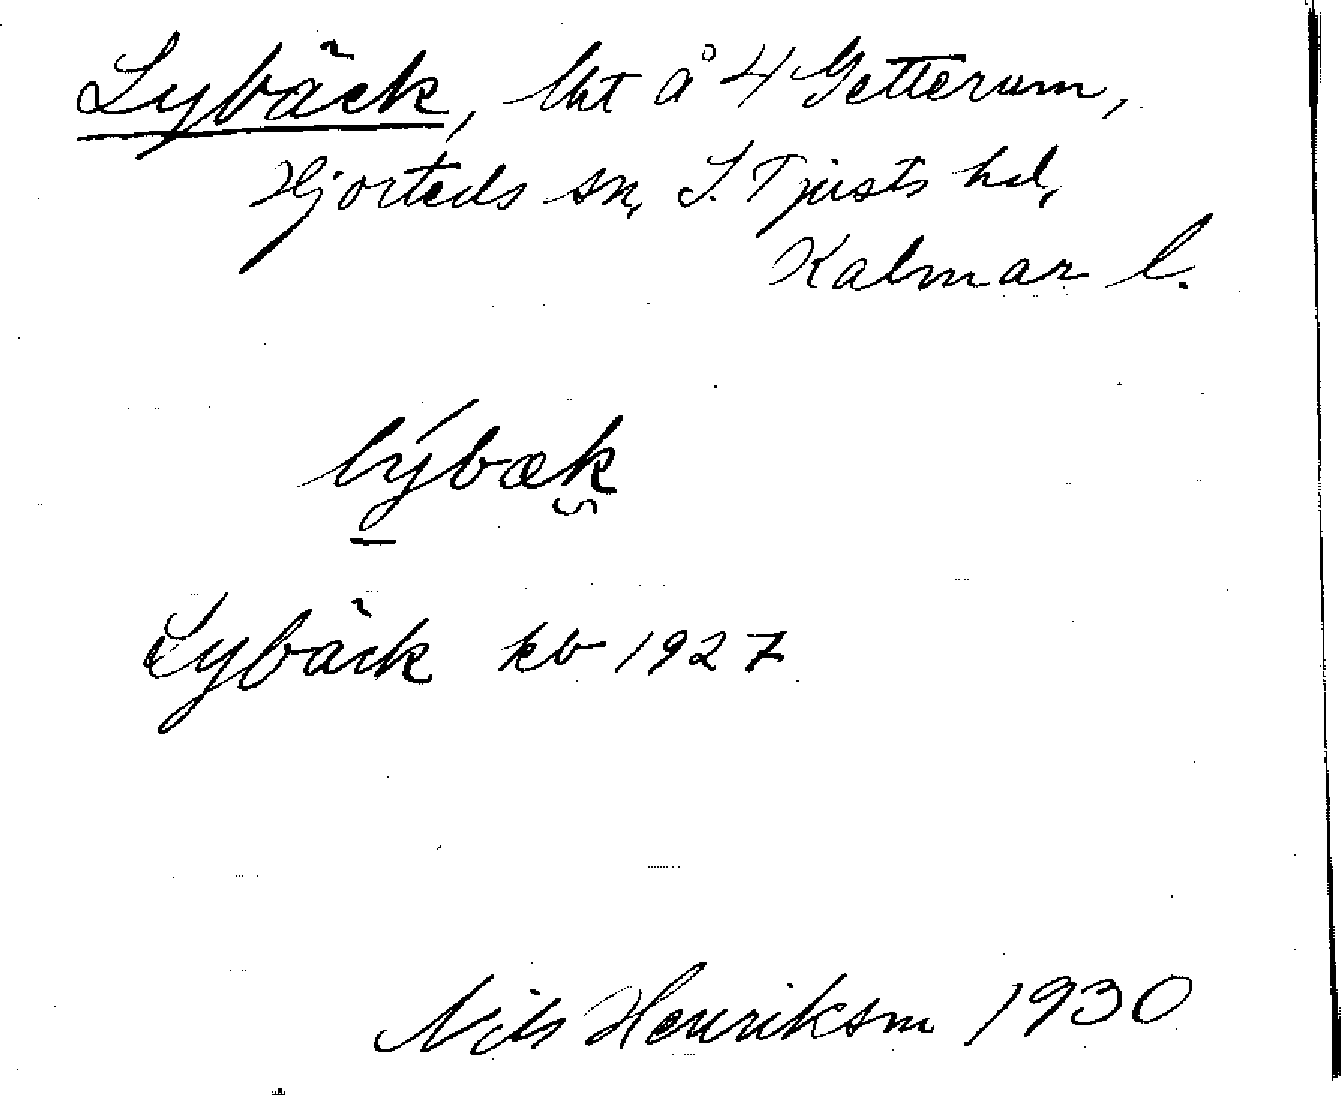 Lybäck, lht å 4 Getterum,
Hjorteds sn, S. Tjusts hd,
Kalmar l.
lýbæk
Lybäck kb 1927
Nils Henrikson 1930